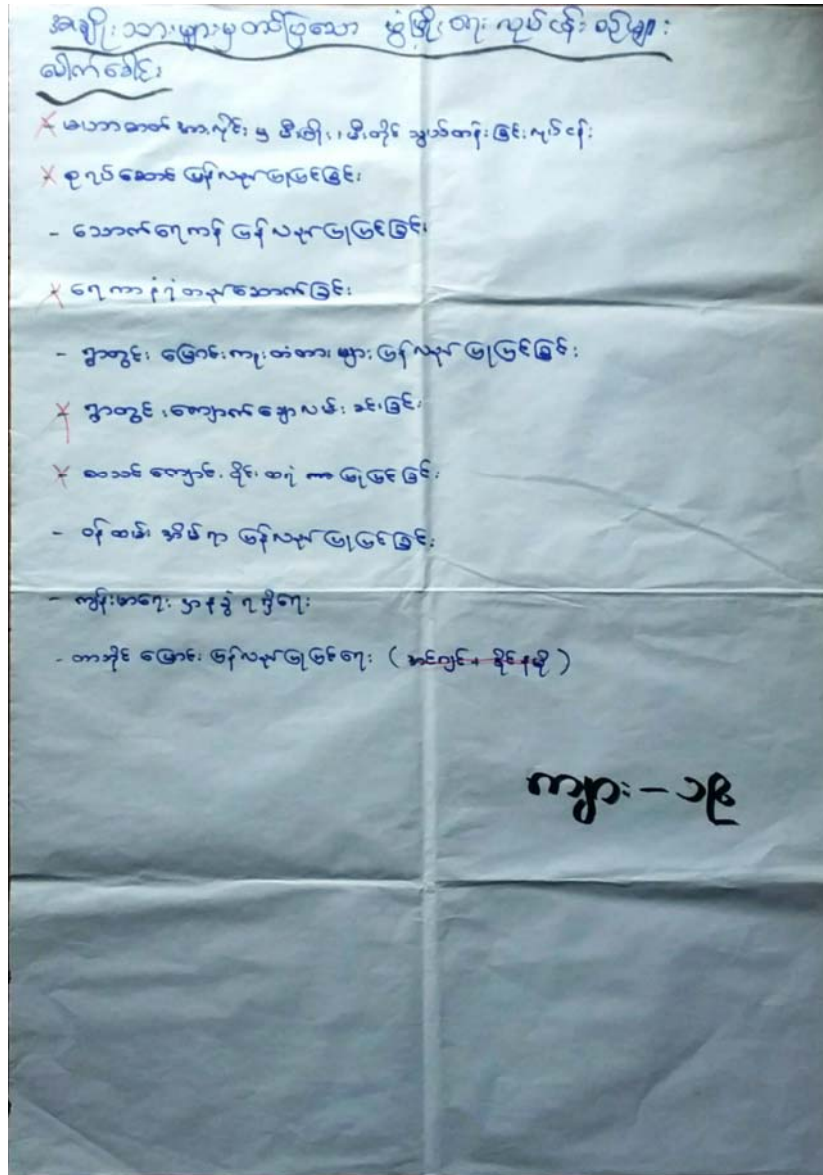 အမျိုးသားများမှတင်ပြသော ဖွံ့ဖြိုးရေး လုပ်ငန်းစဉ်များ
ပေါက်ခေါင်း
× မဟာဓာတ်အားလိုင်းမှ မီးကြိုး၊ မီးတိုင် သွယ်တန်းခြင်းလုပ်ငန်း
× စုရပ်ဆောင် ပြန်လည်ပြုပြင်ခြင်း
- သောက်ရေကန် ပြန်လည်ပြုပြင်ခြင်း
× ရေကာနံရံတည်ဆောက်ခြင်း
- ရွာတွင်း မြောင်းကူးတံတားများ ပြန်လည်ပြုပြင်ခြင်း
× ရွာတွင်းကျောက်ချောလမ်းခင်းခြင်း
× စာသင်ကျောင်းဝိုင်းထရံကာပြုပြင်ခြင်း
- ဝန်ထမ်းအိမ်ရာ ပြန်လည်ပြုပြင်ခြင်း
- ကျန်းမာရေးဌာနခွဲရရှိရေး
- တာဘိုင်မြောင်း ပြန်လည်ပြုပြင်ရေး
ကျား - ၁၉ဦး